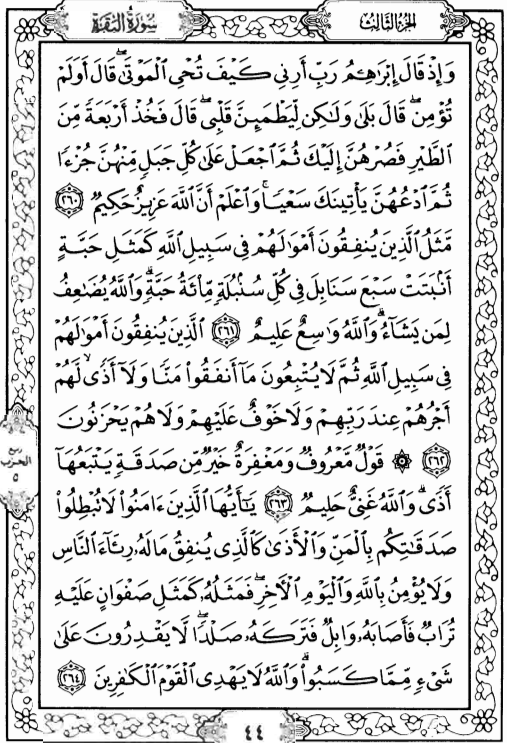 سورة البقرة
الجزء الثالث
وَإِذْ قَالَ إِبْرَٰهِـۧمُ رَبِّ أَرِنِى كَيْفَ تُحْىِ ٱلْمَوْتَىٰ ۖ قَالَ أَوَلَمْ
تُؤْمِن ۖ قَالَ بَلَىٰ وَلَٰكِن لِّيَطْمَئِنَّ قَلْبِى ۖ قَالَ فَخُذْ أَرْبَعَةً مِّنَ
ٱلطَّيْرِ فَصُرْهُنَّ إِلَيْكَ ثُمَّ ٱجْعَلْ عَلَىٰ كُلِّ جَبَلٍ مِّنْهُنَّ جُزْءًا
ثُمَّ ٱدْعُهُنَّ يَأْتِينَكَ سَعْيًا ۚ وَٱعْلَمْ أَنَّ ٱللَّهَ عَزِيزٌ حَكِيمٌ ٢٦٠
مَّثَلُ ٱلَّذِينَ يُنفِقُونَ أَمْوَٰلَهُمْ فِى سَبِيلِ ٱللَّهِ كَمَثَلِ حَبَّةٍ
أَنۢبَتَتْ سَبْعَ سَنَابِلَ فِى كُلِّ سُنۢبُلَةٍ مِّا۟ئَةُ حَبَّةٍ ۗ وَٱللَّهُ يُضَٰعِفُ
لِمَن يَشَآءُ ۗ وَٱللَّهُ وَٰسِعٌ عَلِيمٌ ٢٦١ ٱلَّذِينَ يُنفِقُونَ أَمْوَٰلَهُمْ
فِى سَبِيلِ ٱللَّهِ ثُمَّ لَا يُتْبِعُونَ مَآ أَنفَقُوا۟ مَنًّا وَلَآ أَذًى ۙ لَّهُمْ
أَجْرُهُمْ عِندَ رَبِّهِمْ وَلَا خَوْفٌ عَلَيْهِمْ وَلَا هُمْ يَحْزَنُونَ
٢٦٢ ۞ قَوْلٌ مَّعْرُوفٌ وَمَغْفِرَةٌ خَيْرٌ مِّن صَدَقَةٍ يَتْبَعُهَآ
أَذًى ۗ وَٱللَّهُ غَنِىٌّ حَلِيمٌ ٢٦٣ يَٰٓأَيُّهَا ٱلَّذِينَ ءَامَنُوا۟ لَا تُبْطِلُوا۟
صَدَقَٰتِكُم بِٱلْمَنِّ وَٱلْأَذَىٰ كَٱلَّذِى يُنفِقُ مَالَهُۥ رِئَآءَ ٱلنَّاسِ
وَلَا يُؤْمِنُ بِٱللَّهِ وَٱلْيَوْمِ ٱلْءَاخِرِ ۖ فَمَثَلُهُۥ كَمَثَلِ صَفْوَانٍ عَلَيْهِ
تُرَابٌ فَأَصَابَهُۥ وَابِلٌ فَتَرَكَهُۥ صَلْدًا ۖ لَّا يَقْدِرُونَ عَلَىٰ
شَىْءٍ مِّمَّا كَسَبُوا۟ ۗ وَٱللَّهُ لَا يَهْدِى ٱلْقَوْمَ ٱلْكَٰفِرِينَ ٢٦٤
ربع
الحزب
٥
٤٤